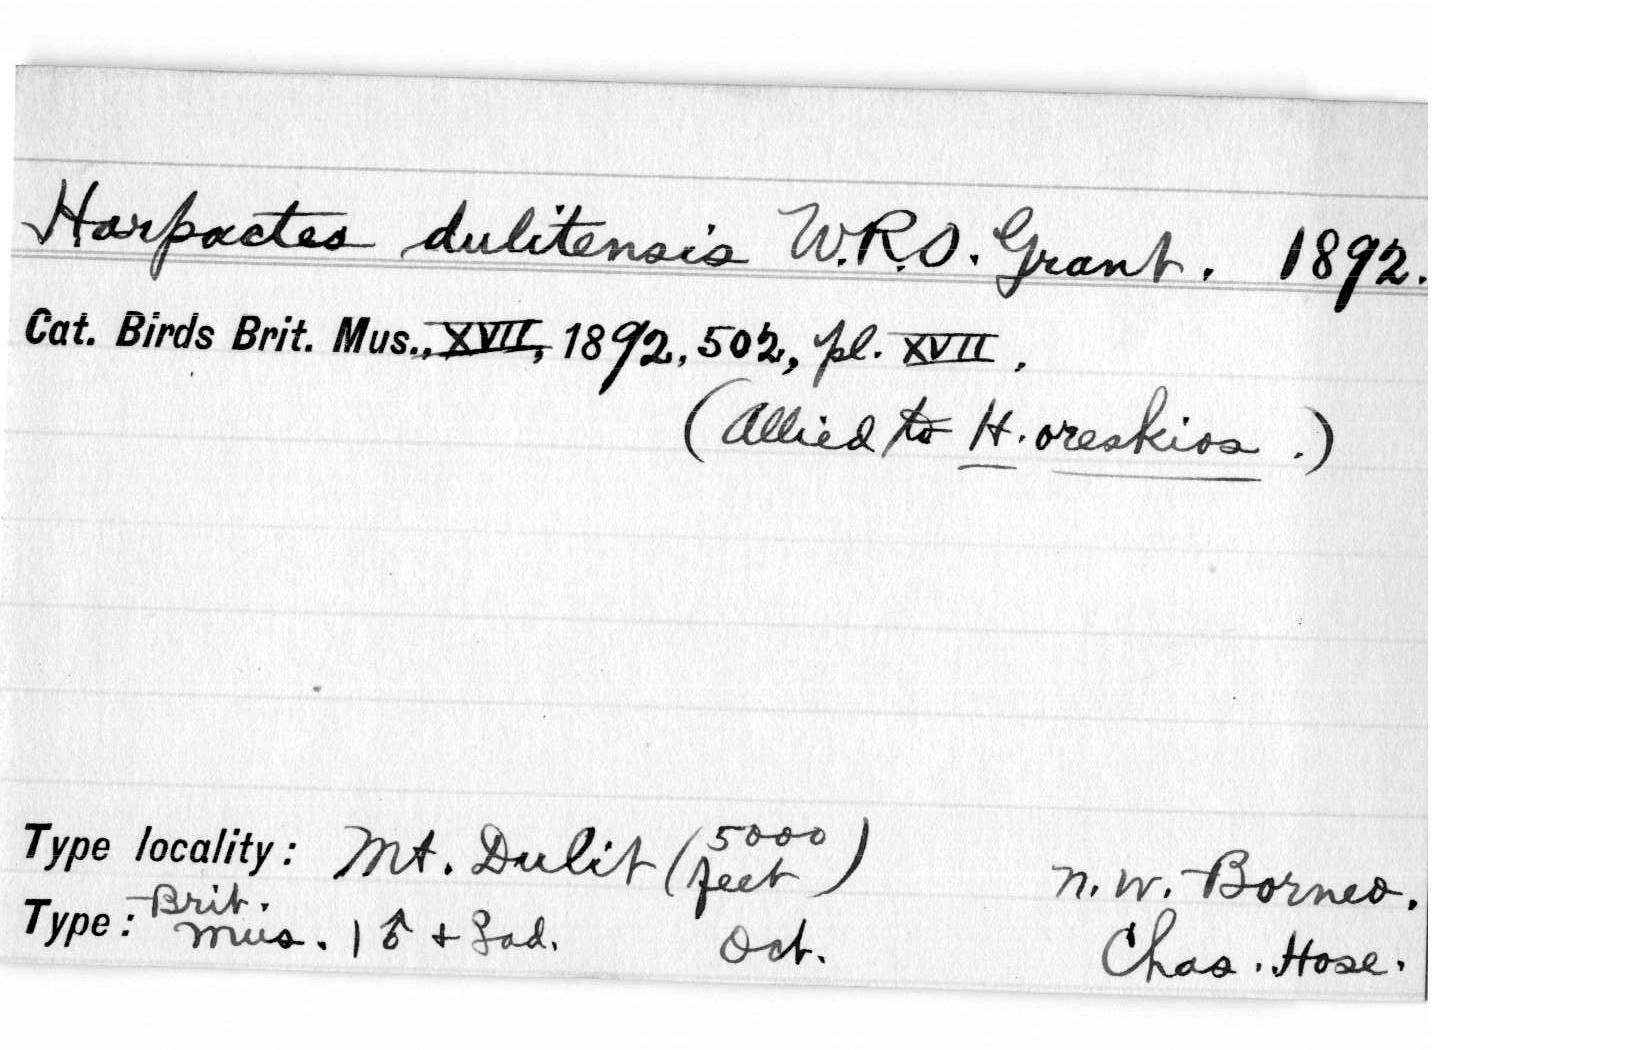 Harpactes dulitensis W.R.O. Grant. 1892.
Cat. Birds Brit. Mus., XVII, 1892, 502, pl. XVII.
(Allied to H. oreskios.)
Type locality: Mt. Dulit (5000 feet) N.W. Borneo.
Type: Brit. Mus. 1 ♂ + ♀ ad. Oct. Chas. Hose.